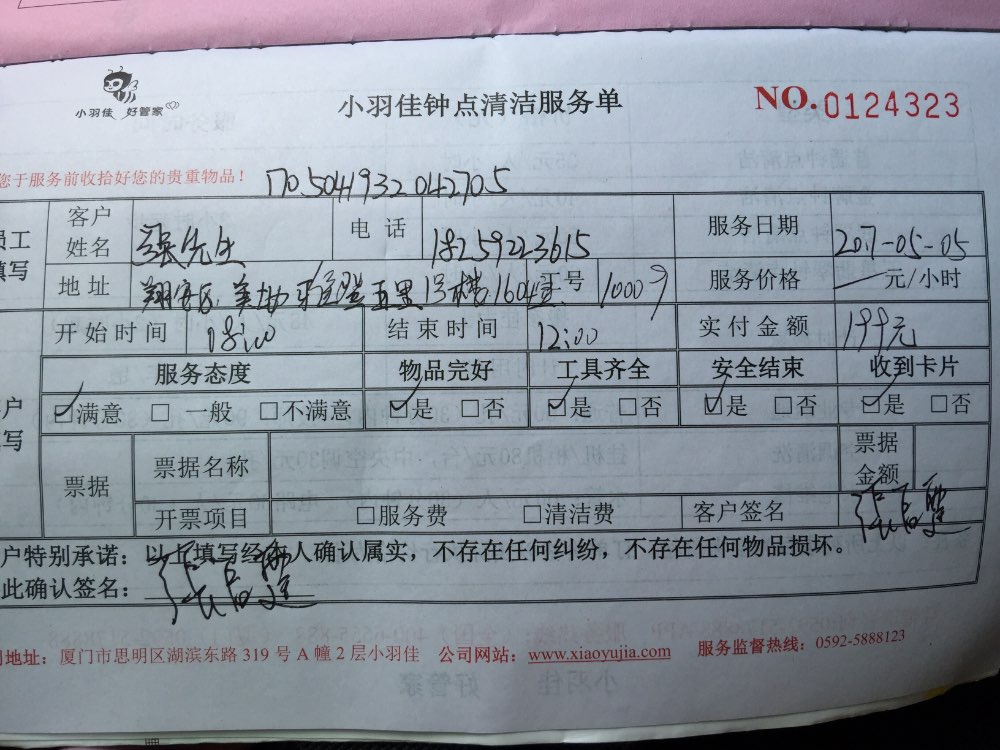 小羽佳 好管家
小羽佳钟点清洁服务单
NO.0124323
您于服务前收拾好您的贵重物品！
170504193204270.5
员工填写
客户姓名 张先生 电话 18259223615 服务日期 2017-05-05
地址 翔安区 美地 五里1号楼1604室 工号 10009 服务价格 一元/小时
开始时间 08:00 结束时间 12:00 实付金额 199元
服务态度 物品完好 工具齐全 安全结束 收到卡片
☑满意 □ 一般 □不满意 ☑是 □否 ☑是 □否 ☑是 □否 ☑是 □否
户
写
票据 票据名称 票据金额
开票项目 □服务费 □清洁费 客户签名
户特别承诺：以上填写经本人确认属实，不存在任何纠纷，不存在任何物品损坏。
此确认签名：
地址：厦门市思明区湖滨东路 319 号 A 幢 2 层小羽佳 公司网站：www.xiaoyujia.com 服务监督热线：0592-5888123